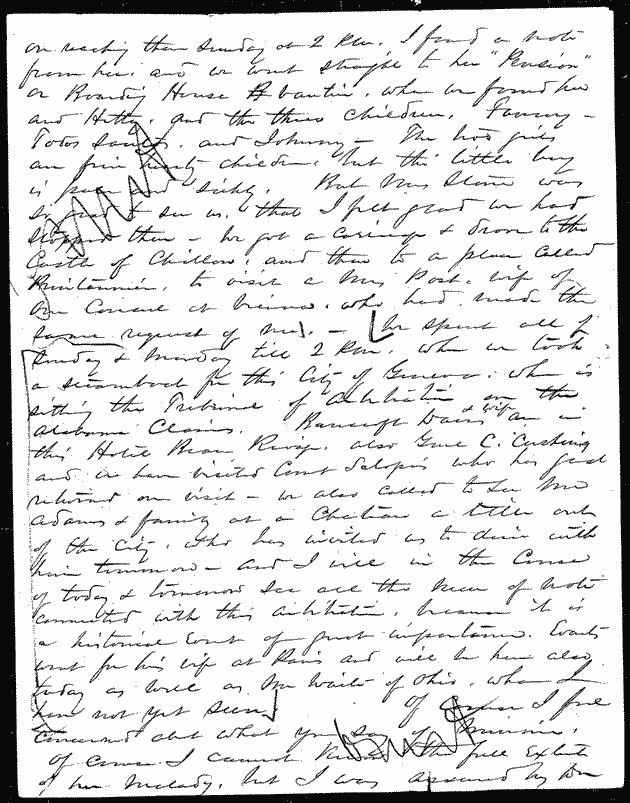 on reaching there Sunday at 2 P.M. I found a note
from her, and we went straight to her "Pension"
or Boarding House, when we found her
and Hitty, and the three children, Fanny -
Todos Santos, and Johnny - The two girls
are fine hearty children, but the little boy
is puny and sickly. But Mrs Stone was
so glad to see us, that I felt glad we had
stopped there - We got a carriage & drove to the
Castle of Chillon, and then to a place called
to visit a Mrs Post, wife of
our Consul at Vienna, who had made the
same request of me. - We spent all of
Sunday & Monday till 2 P.M. when we took
a steamboat for this City of Geneva, where is
sitting the Tribunal of Arbitration on the
Alabama Claims. Bancroft Davis & wife are in
this Hotel Beau Rivage, also Genl C. Cushing
and we have visited Count Sclopis who has just
returned our visit - we also called to see Mr
Adams & family at a Chateau a little out
of the City, who has invited us to dine with
him tomorrow - and I will in the Course
of today & tomorrow see all the men of note
connected with this arbitration, because it is
a historical Event of great importance. Evarts
went for his wife at Paris and will be here also
today as well as Mr Waite of Ohio, whom I
have not yet seen. Of course I feel
concerned abt what you say of Minnie.
Of course I cannot know the full Extent
of her malady, but I was assured by Dr